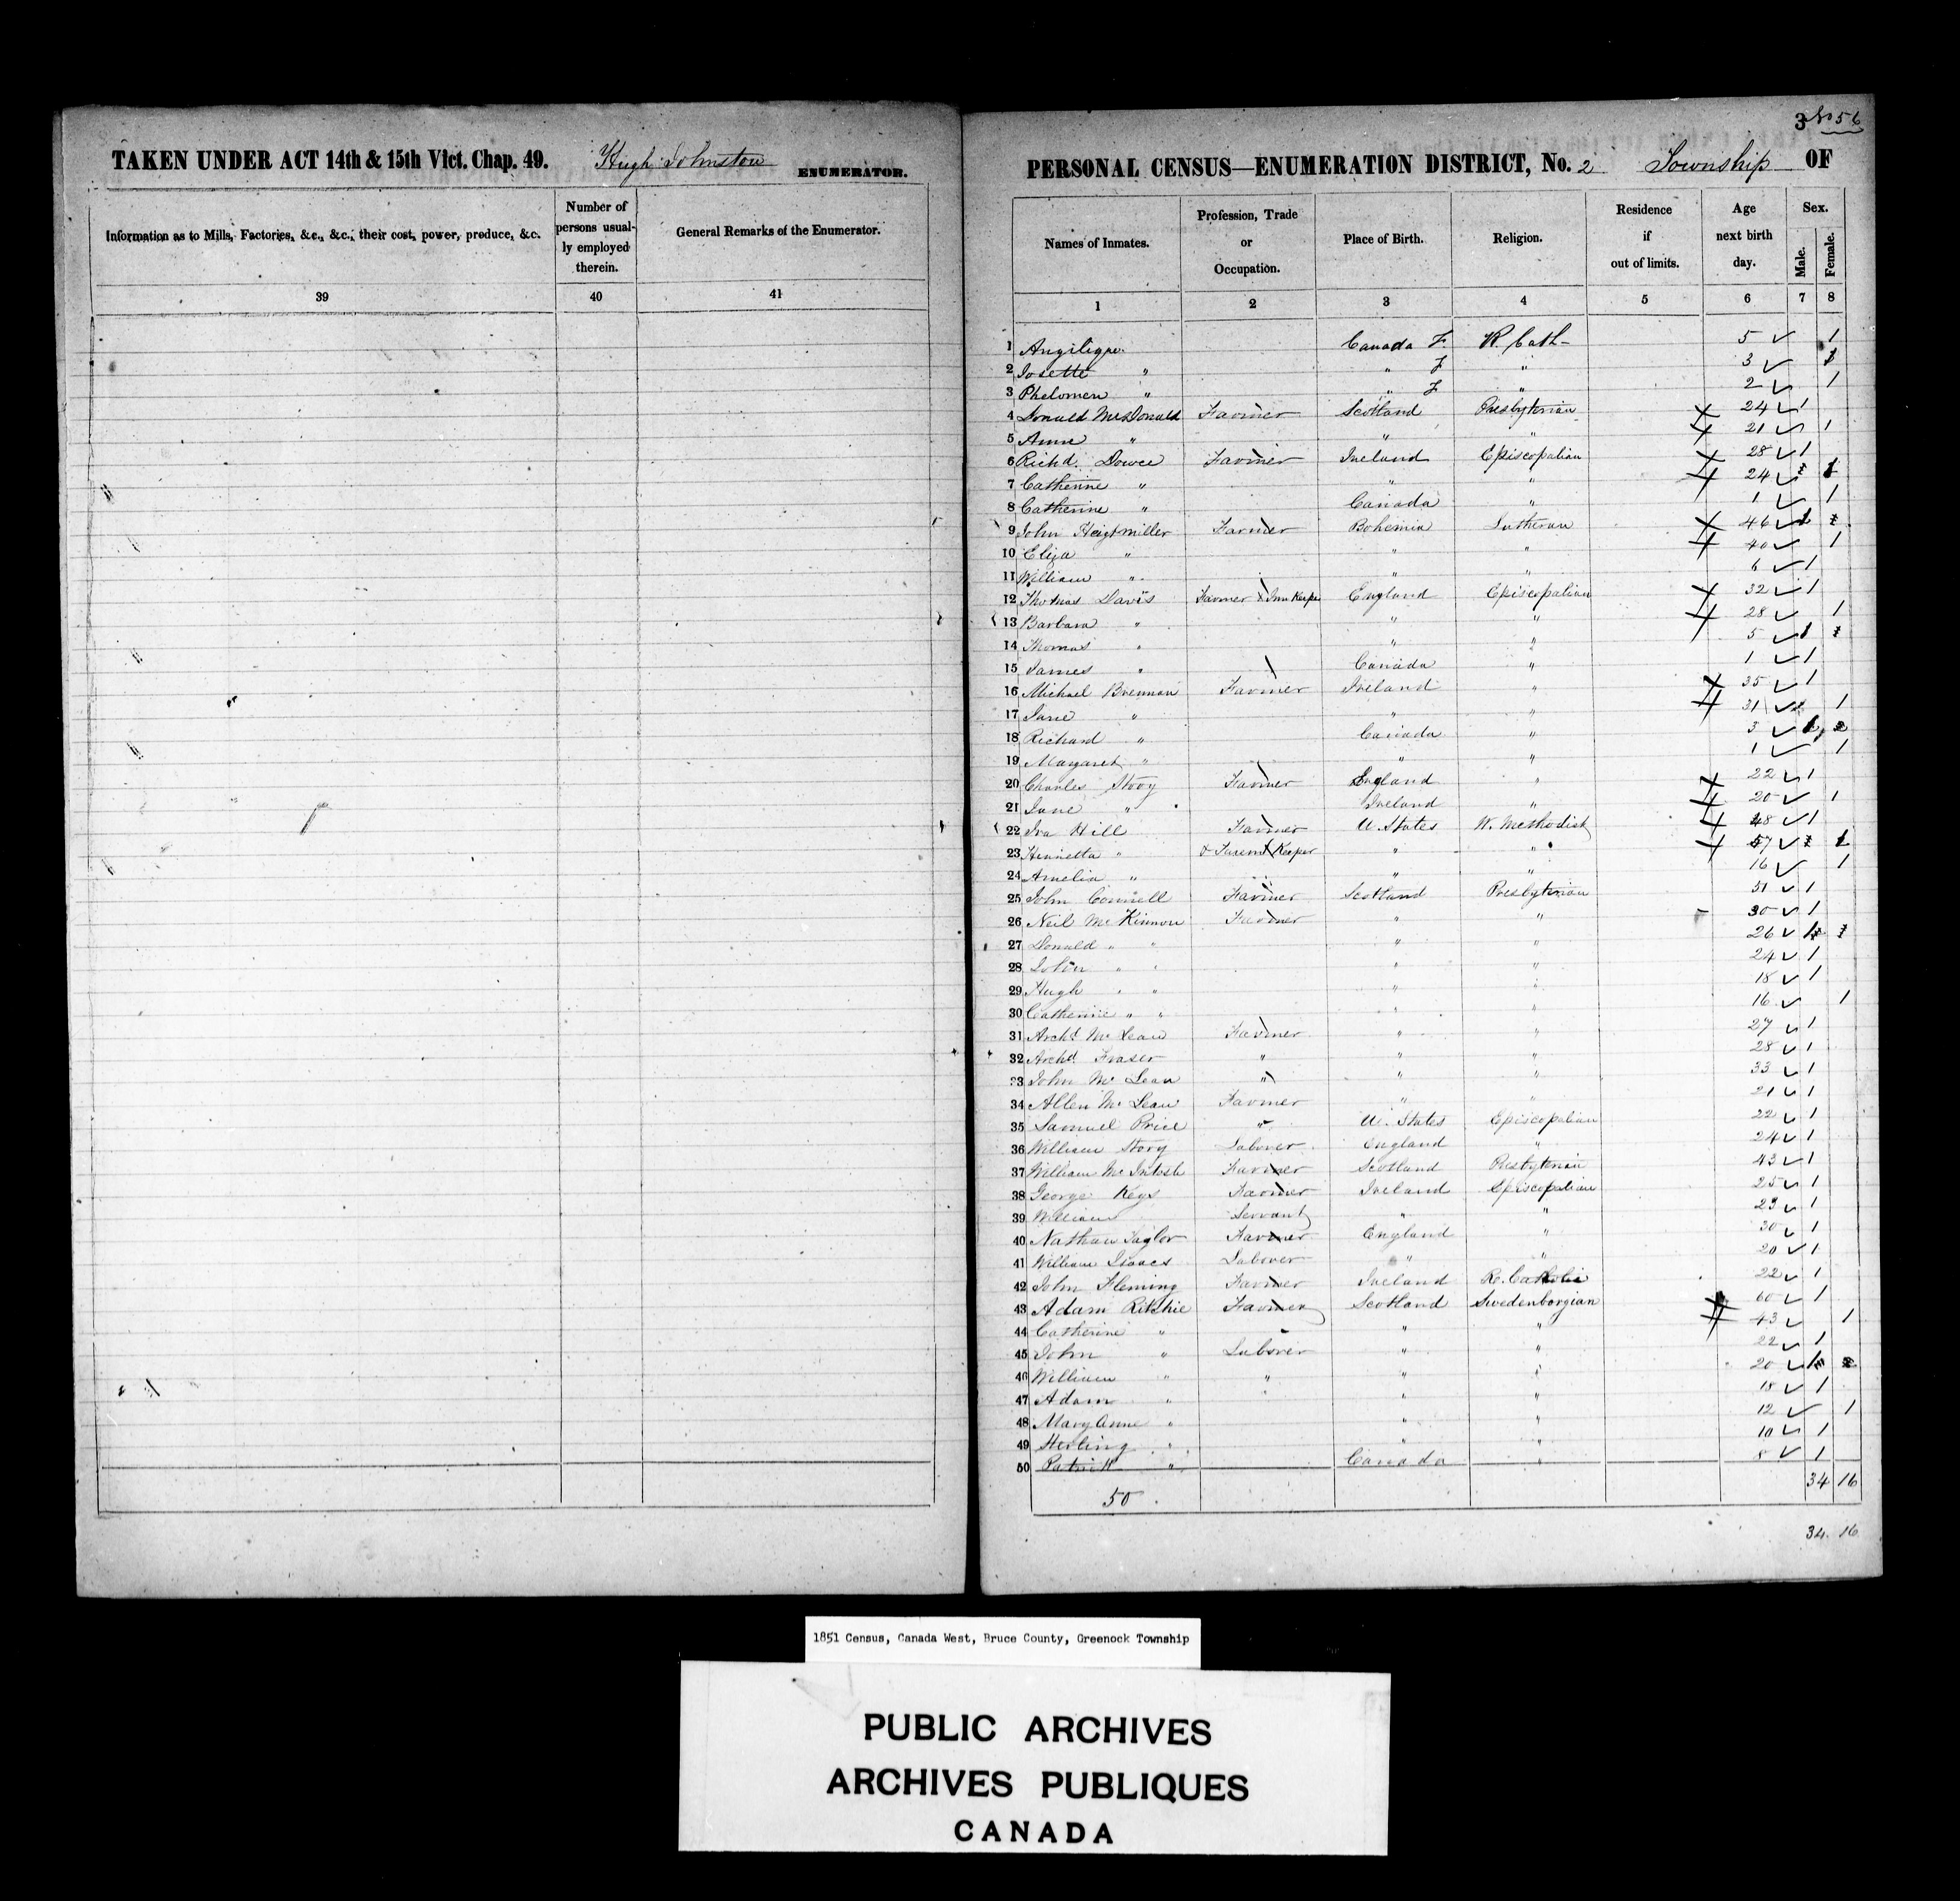 TAKEN UNDER ACT 14th & 15th Vict. Chap. 49. Hugh Johnston ENUMERATOR.
Information as to Mills, Factories, &c., &c., their cost, power, produce, &c.
Number of persons usually employed therein.
General Remarks of the Enumerator.
39 40 41
3 No 56
PERSONAL CENSUS—ENUMERATION DISTRICT, No. 2 Township OF
Names of Inmates. Profession, Trade or Occupation. Place of Birth. Religion. Residence if out of limits. Age next birth day. Sex. Male. Female.
1 2 3 4 5 6 7 8
1 Angilique Canada F. R. Cath- 5 1
2 Josette " " F " 3 1
3 Phelomen " " F " 2 1
4 Donald McDonald Farmer Scotland Presbyterian 24 1
5 Anne " " " 21 1
6 Richd. Dowce Farmer Ireland Episcopalian 28 1
7 Catherine " " " 24 1
8 Catherine " Canada " 1 1
9 John Farmer Bohemia Lutheran 46 1
10 Eliza " " " 40 1
11 William " " " 6 1
12 Thomas Davis Farmer & Inn Keeper England Episcopalian 32 1
13 Barbara " " " 28 1
14 Thomas " " " 5 1
15 James " Canada " 1 1
16 Michael Brennan Farmer Ireland " 35 1
17 Jane " " " 31 1
18 Richard " Canada " 3 1
19 Margaret " " " 1 1
20 Charles Story Farmer England " 22 1
21 Jane " Ireland " 20 1
22 Ira Hill Farmer U. States W. Methodist 48 1
23 Henrietta " & Keeper " " 57 1
24 Amelia " " " 16 1
25 John Connell Farmer Scotland Presbyterian 51 1
26 Neil McKinnon Farmer " " 30 1
27 Donald " " " " 26 1
28 John " " " " 24 1
29 Hugh " " " " 18 1
30 Catherine " " " " 16 1
31 Archd. McLean Farmer " " 27 1
32 Archd. Fraser " " " 28 1
33 John McLean " " " 33 1
34 Allen McLean Farmer " " 21 1
35 Samuel Price " U. States Episcopalian 22 1
36 William Story Laborer England " 24 1
37 William McIntosh Farmer Scotland Presbyterian 43 1
38 George Keys Farmer Ireland Episcopalian 25 1
39 William Servant " " 23 1
40 Nathan Taylor Farmer England " 30 1
41 William Isaacs Laborer " " 20 1
42 John Fleming Farmer Ireland R. Catholic 22 1
43 Adam Ritchie Farmer Scotland Swedenborgian 60 1
44 Catherine " " " 43 1
45 John " Laborer " " 22 1
46 William " " " " 20 1
47 Adam " " " " 18 1
48 Mary Anne " " " 12 1
49 Sterling " " " 10 1
50 Patrick " Canada " 8 1
50 34 16
34. 16
1851 Census, Canada West, Bruce County, Greenock Township
PUBLIC ARCHIVES
ARCHIVES PUBLIQUES
CANADA